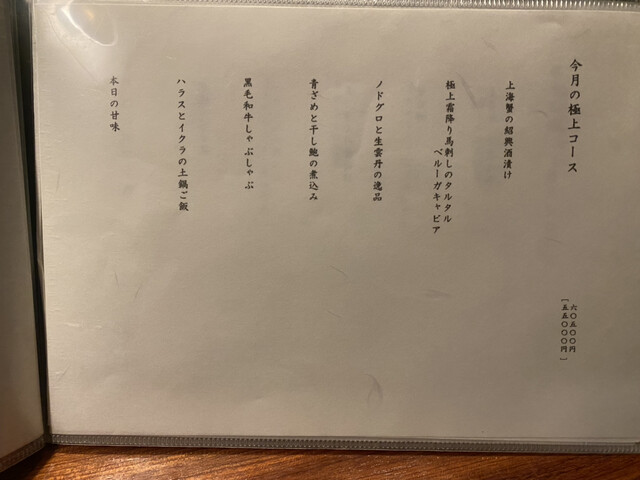 今月の極上コース
六〇五〇〇円
[五五〇〇〇円]
上海蟹の紹興酒漬け
極上霜降り馬刺しのタルタル
ベルーガキャビア
ノドグロと生雲丹の逸品
青ざめと干し鮑の煮込み
黒毛和牛しゃぶしゃぶ
ハラスとイクラの土鍋ご飯
本日の甘味